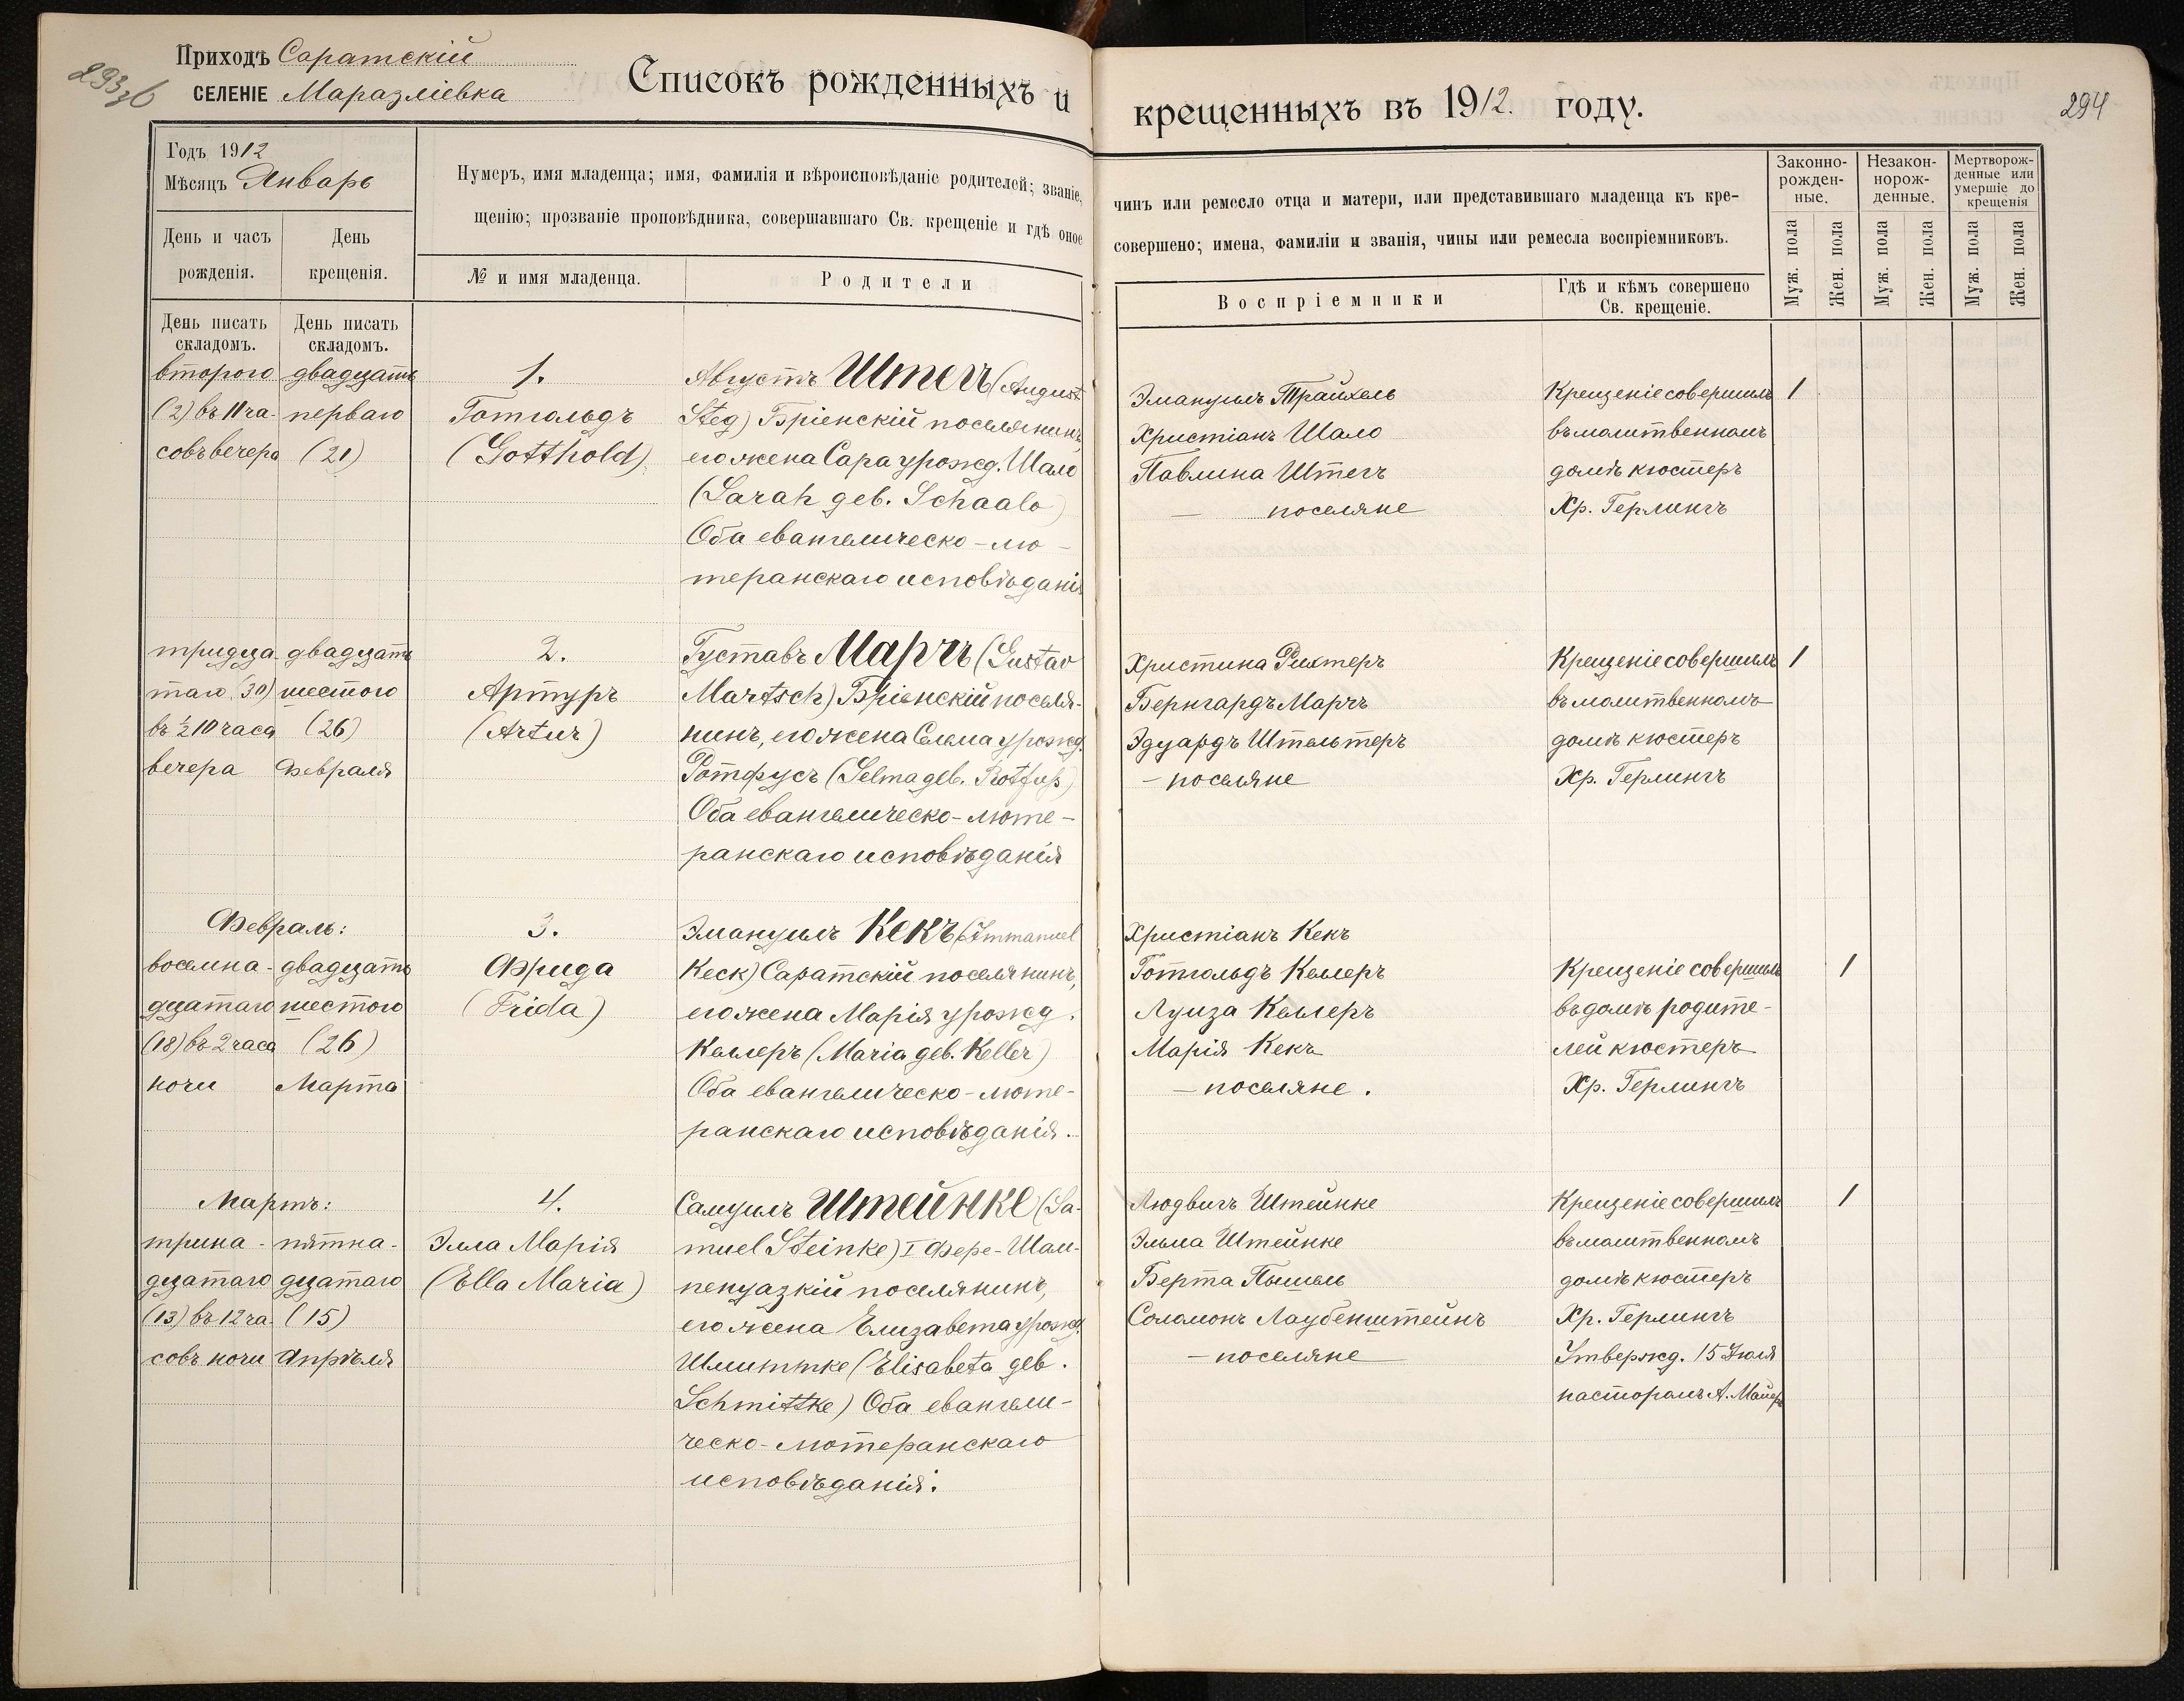 293 об
Приходъ Саратскій
СЕЛЕНІЕ Маразліевка
Списокъ рожденныхъ и
крещенныхъ въ 1912. году.
294
Годъ 1912
Мѣсяцъ Январь
День и часъ рожденія.
День крещенія.
Нумеръ, имя младенца; имя, фамилія и вѣроисповѣданіе родителей; званіе,
щенію; прозваніе проповѣдника, совершавшаго Св. крещеніе и гдѣ оное
№ и имя младенца.
Родители
чинъ или ремесло отца и матери, или представившаго младенца къ кре-
совершено; имена, фамиліи и званія, чины или ремесла воспріемниковъ.
Воспріемники
Гдѣ и кѣмъ совершено
Св. крещеніе.
Законно-
рожден-
ные.
Незакон-
норож-
денные.
Мертворож-
денные или
умершіе до
крещенія
Муж. пола
Жен. пола
Муж. пола
Жен. пола
Муж. пола
Жен. пола
День писать
складомъ.
День писать
складомъ.
второго
(2) въ 11 ча-
совъ вечера
двадцать
перваго
(21)
1.
Готгольдъ
(Gotthold)
Августъ Штегъ (August
Steg) Бріенскій поселянинъ,
его жена Сара урожд. Шало
(Sarah geb. Schaalo)
Оба евангелическо-лю-
теранскаго исповѣданія
Эмануилъ Трайхель
Христіанъ Шало
Павлина Штегъ
— поселяне
Крещеніе совершилъ
въ молитвенномъ
домѣ кюстеръ
Хр. Герлингъ
1
тридца-
таго (30)
въ ½ 10 часа
вечера
двадцать
шестого
(26)
Февраля
2.
Артуръ
(Artur)
Густавъ Марчъ (Gustav
Martsch) Бріенскій поселя-
нинъ, его жена Селма урожд.
Ротфусъ (Selma geb. Rotfuß)
Оба евангелическо-люте-
ранскаго исповѣданія
Христина Рихтеръ
Бернгардъ Марчъ
Эдуардъ Штельтеръ
— поселяне
Крещеніе совершилъ
въ молитвенномъ
домѣ кюстеръ
Хр. Герлингъ
1
Февраль:
восемна-
дцатаго
(18) въ 2 часа
ночи
двадцать
шестого
(26)
Марта
3.
Фрида
(Frida)
Эмануилъ Кекъ (Immanuel
Keck) Саратскій поселянинъ,
его жена Марія урожд.
Келлеръ (Maria geb. Keller)
Оба евангелическо-люте-
ранскаго исповѣданія.
Христіанъ Кекъ
Готгольдъ Келлеръ
Луиза Келлеръ
Марія Кекъ
— поселяне.
Крещеніе совершилъ
въ домѣ родите-
лей кюстеръ
Хр. Герлингъ
1
Мартъ:
трина-
дцатаго
(13) въ 12 ча-
совъ ночи
пятна-
дцатаго
(15)
Апрѣля
4.
Элла Марія
(Ella Maria)
Самуилъ Штейнке (Sa-
muel Steinke) I Фере-Шам-
пенуазкій поселянинъ,
его жена Елизавета урожд.
Шмиттке (Elisabeta geb.
Schmittke) Оба евангели-
ческо-лютеранскаго
исповѣданія.
Людвигъ Штейнке
Эльма Штейнке
Берта Пышель
Соломонъ Лаубенштейнъ
— поселяне
Крещеніе совершилъ
въ молитвенномъ
домѣ кюстеръ
Хр. Герлингъ
Утвержд. 15 Іюля
пасторомъ А. Майеръ
1